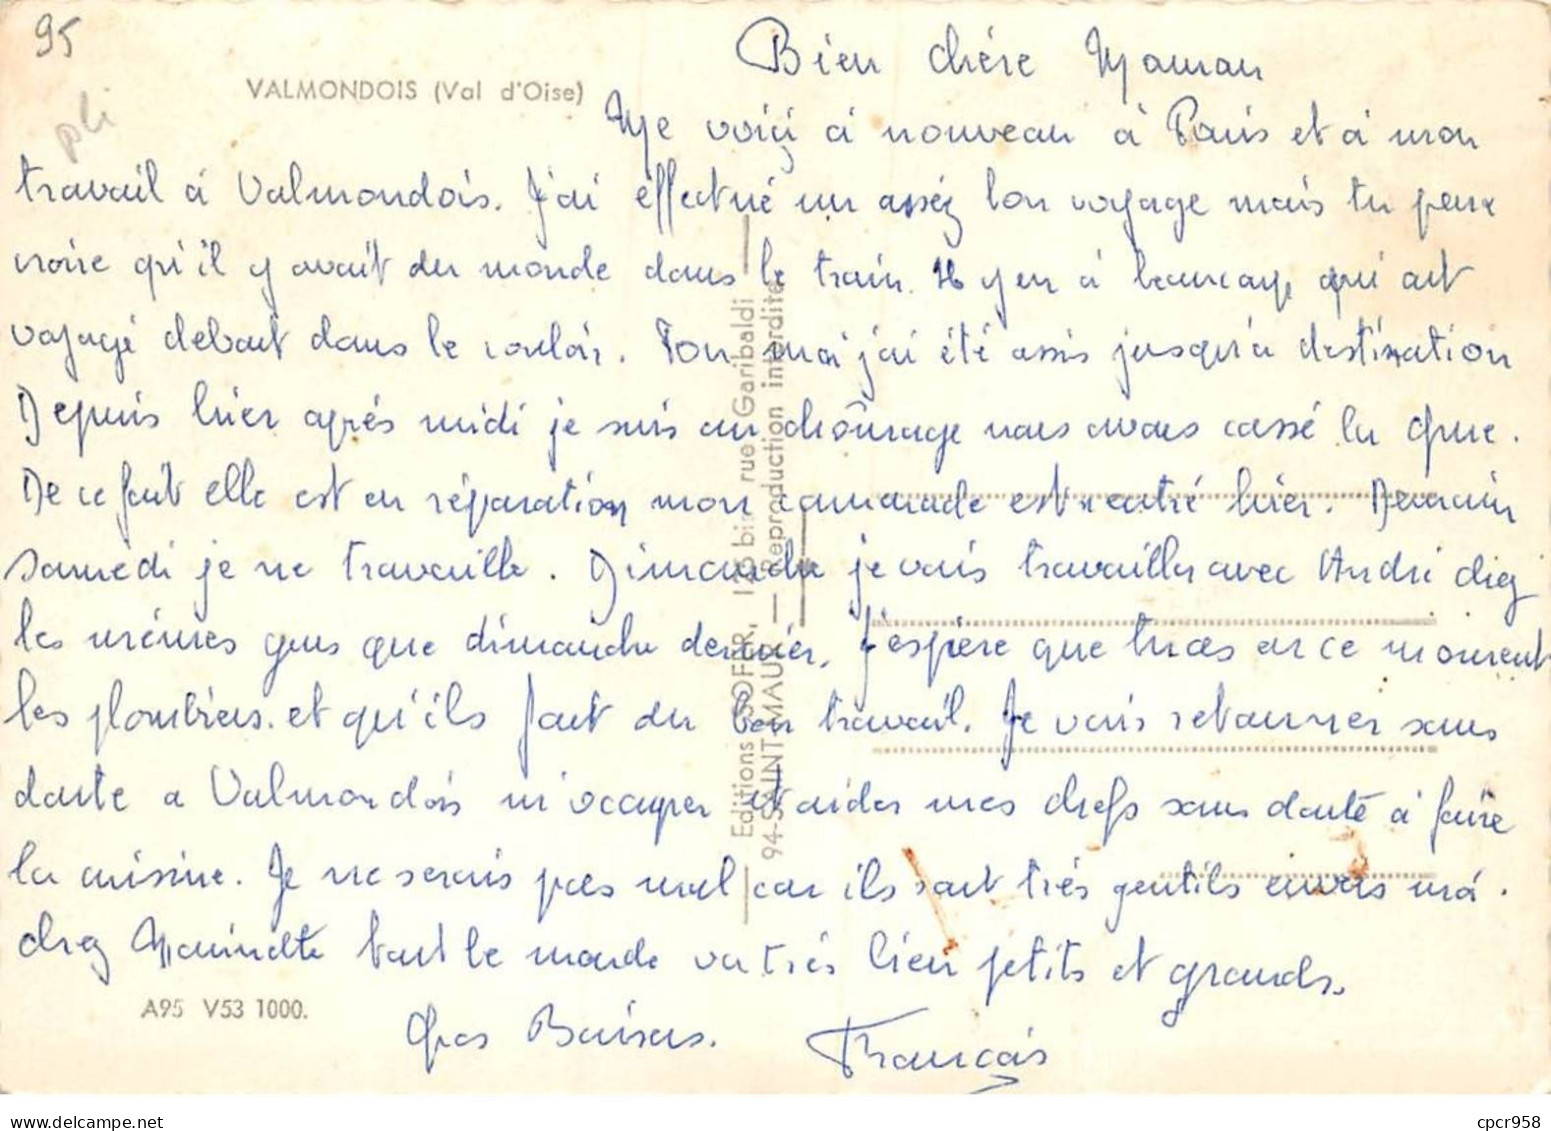 95
pli
VALMONDOIS (Val d'Oise)
Bien chére Maman
Me voiçi à nouveau à Paris et à mon
travail à Valmondois. J'ai éffectué un asséz bon voyage mais tu peux
croire qu'il y avait du monde dans le train. Il y en à beaucoup qui ont
voyagé debout dans le couloir. Pour moi j'ai été assis jusqu'a destination
Depuis hier aprés midi je suis au chômage nous avons cassé la grue.
De ce fait elle est en réparation mon camarade est rentré hier. Demain
Samedi je ne travaille. Dimanche je vais travailler avec André chez
les mêmes gens que dimanche dernier. J'espère que tu as en ce moment
les plombiers. et qu'ils font du bon travail. Je vais retourner sans
doute a Valmondois m'occuper et aider mes chefs sans douté à faire
la cuisine. Je ne serais pas mal car ils sont trés gentils envers moi.
chez Mauricette tout le monde va trés bien petits et grands.
Gros Baisers. François
A95 V53 1000.
Editions SOFER, 175 bis rue Garibaldi
94-SAINT-MAUR — Reproduction interdite
cpcr958